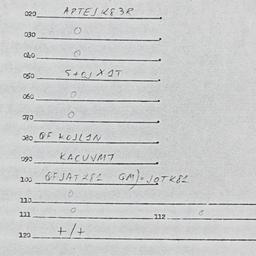 020 APTEJK83R
030 0
040 0
050 S+CJX1T
060 0
070 0
080 QF KOJL1N
090 KACUVMT
100 QFJATK81 GM)=JQTK81
110 0
111 0 112 0
120 +/+